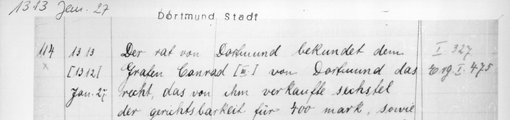 1313 Jan. 27
Dortmund Stadt
114 1313 Der rat von Dortmund bekundet dem I 327
x [1312] Grafen Conrad [III] von Dortmund das Erg I. 475
Jan. 27 recht, das von ihm verkaufte sechstel
der gerichtsbarkeit für 400 mark, sowie